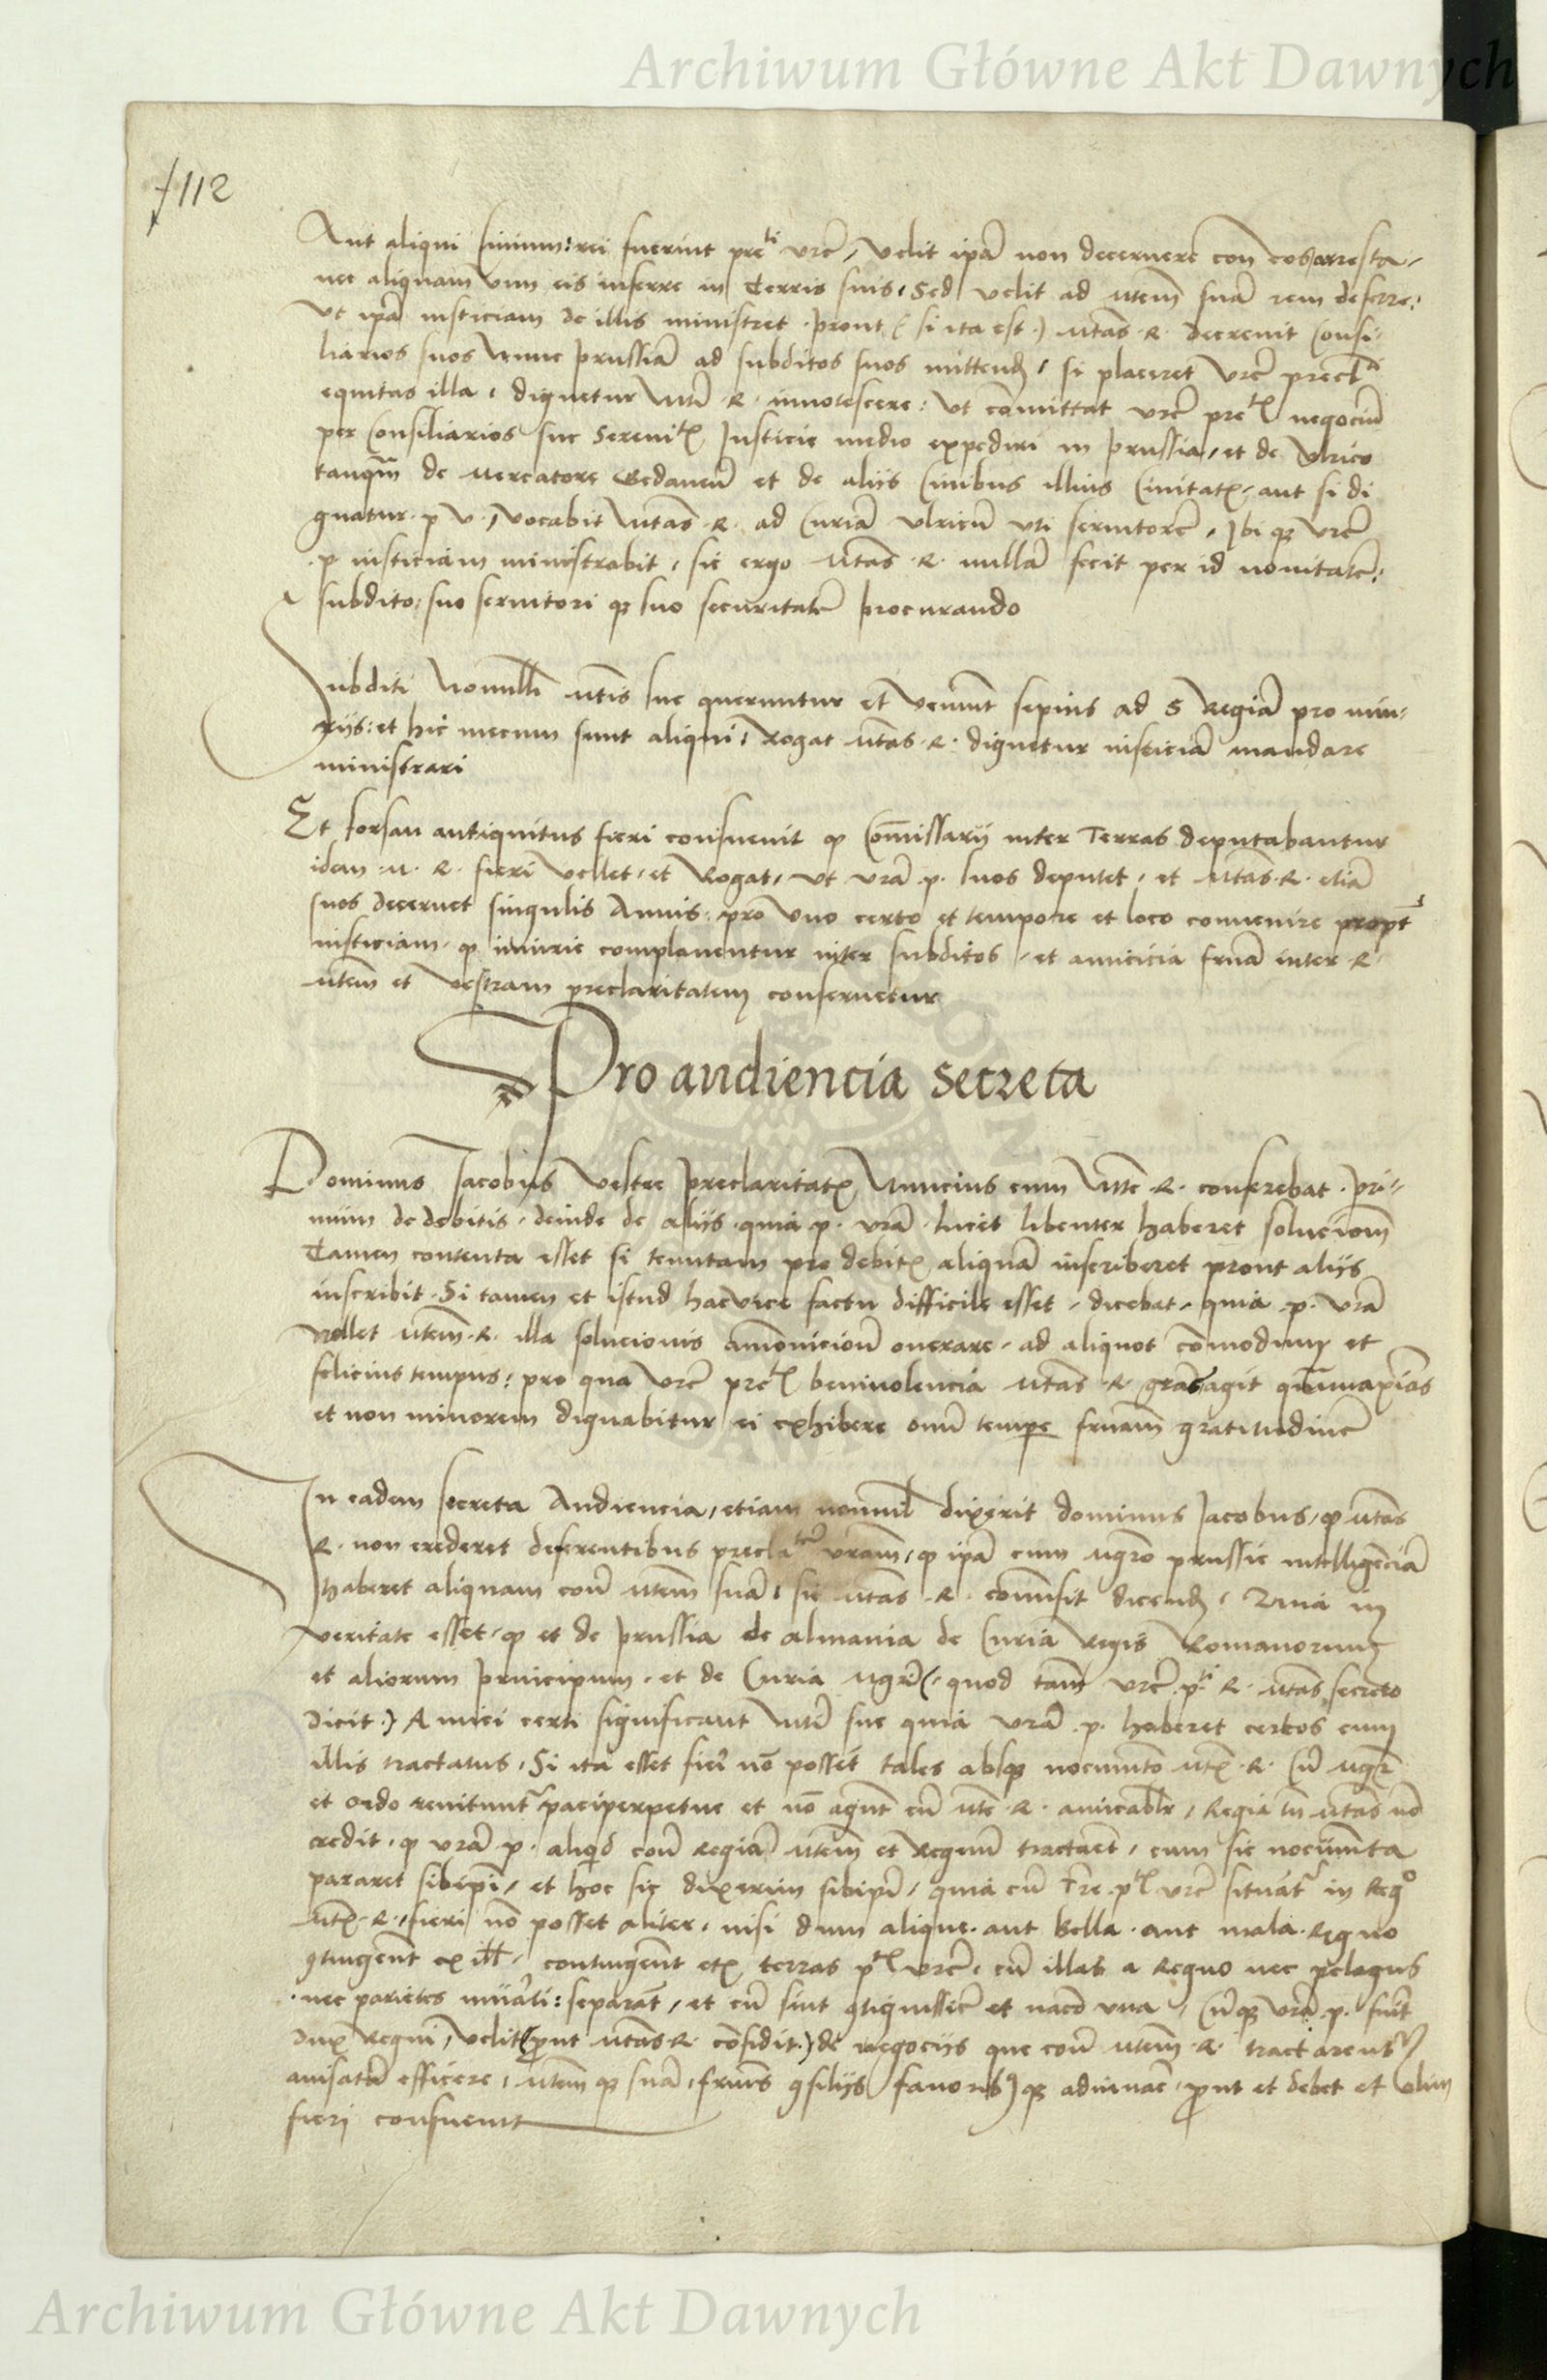 Archiwum Główne Akt Dawnych
112
Aut aliqui Civium: rei fuerint prēti vrē, velit ipā non decernere con eos arresta,
nec aliquam vim eis inferre in Terris suis, Sed velit ad Mtem suā rem deferre:
Vt ipā iusticiam de illis ministret. prout (si ita est.) Mtas. R. decrevit Consi-
liarios suos nunc prussiā ad subditos suos mittend, si placeret vrē preclti
equitas illa, dignetur Mti. R. innotescere: Vt cōmittat vrē pretis negociū
per Consiliarios sue Serenitis Justicie medio expediri in prussia, et de Vlrico
tanqm de Mercatore Gedaneñ et de aliis Civibus illius Civitatis, aut si di
gnatur. p v., vocabit Mtas. R. ad Curiā Vlricū vti servitorē, Ibi qz vrē
.p iusticiam ministrabit, sic ergo Mtas. R. nullā fecit per id novitatē:
subdito: suo servitori qz suo securitatē procurando
Subditi Nonnulli Mtis sue queruntur et veniunt sepius ad S Regiā pro iniu-
riis: et hic mecum sunt aliqui: Rogat Mtas. R. dignetur iusticiā mandare
ministrari
Et forsan antiquitus fieri consuevit q Cōmissarii inter Terras deputabantur
idem M. R. fieri vellet, et Rogat, vt vrā .p. suos deputet, et Mtas. R. etiā
suos decernet singulis Annis: pro vno certo et tempore et loco convenire propt
iusticiam, q iniurie complanentur inter subditos, et amicicia frnā inter R.
Mtem et vestram preclaritatem conservetur
Pro audiencia secreta
Dominus Jacobus Vestre preclaritatis Nuncius cum Mte. R. conferebat. pri-
mum de debitis, deinde de aliis. quia p. vrā. licet libenter haberet solucionē
Tamen contenta esset si tenutam pro debitis aliquā inscriberet prout aliis
inscribit. Si tamen et istud hac vice factu difficile esset, dicebat, quia .p. vrā
nollet Mtem. R. illa solucionis amonicioñ onerare, ad aliquot cōmodius et
felicius tempus: pro qua vrē pretis benivolencia Mtas. R. grās agit qmmaxias
et non minorem dignabitur ei exhibere omī tempe frnam gratitudinē
In eadem secreta Audiencia, etiam nonnul dixerit dominus Jacobus, q Mtas
R. non crederet deferentibus preclatē vram, q ipā cum Mgrō prussie intelligenciā
haberet aliquam con Mtem suā: sic Mtas. R. commisit dicend, Quia in
veritate esset, q et de prussia de almania de Curia Regis Romanorum
et aliorum principum, et de Curia Mgri (, quod tam vrē .pti R. Mtas secreto
dicit.) Amici certi significant Mti sue quia vrā .p. haberet certos cum
illis tractatus, Si ita esset fieri nō possēt tales absqz nocumto Mtis. R. Cū Mgr
et ordo renitunt paci perpetue et nō agūt cū Mte. R. amicablr, Regia tn Mtas nō
credit, q vrā p. aliqid con Regiā Mtem et Regnū tractaēt, cum sic nocumta
pararet sibi ipsi, et hoc sic dixerim sibi ipsi, quia cū Tre .ptis vrē situāt in Regº
Mtis. R., fieri nō posset aliter, nisi dum alique. aut Bella. aut mala. Regno
contingent ex ill, contingent etis terras ptis vrē, cū illas a Regno nec pelagus
.nec parietes murati: separāt, et cū sint contiguissē et nacō vna, Cūqz vrā .p. sūt
dux Regni, velit (prout Mtas. R. confidit.) de negociis que con Mtem. R. tractarent
avisatā efficere, Mtem qz suā, frnis consiliis favoris) qz adiuvaē, prout et debet et olim
fieri consuevit
Archiwum Główne Akt Dawnych